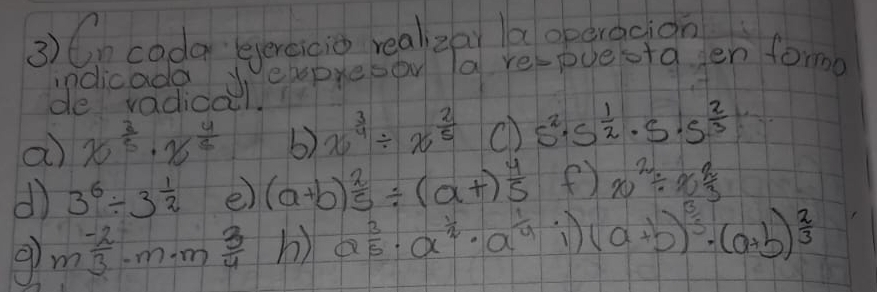 3) En cada ejercicio realizar la operación
indicada y expresar la respuesta en forma
de radical.
a) x^{3/5} · x^{4/5} b) x^{3/4} ÷ x^{2/5} c) 5^2 · 5^{1/2} · 5 · 5^{2/3}
d) 3^6 ÷ 3^{1/2} e) (a+b)^{2/5} ÷ (a+)^{4/5} f) x^2 ÷ x^{2/3}
g) m^{-2/3} · m · m^{3/4} h) a^{3/5} · a^{1/2} · a^{1/4} i) (a+b)^{3/5} · (a+b)^{2/3}